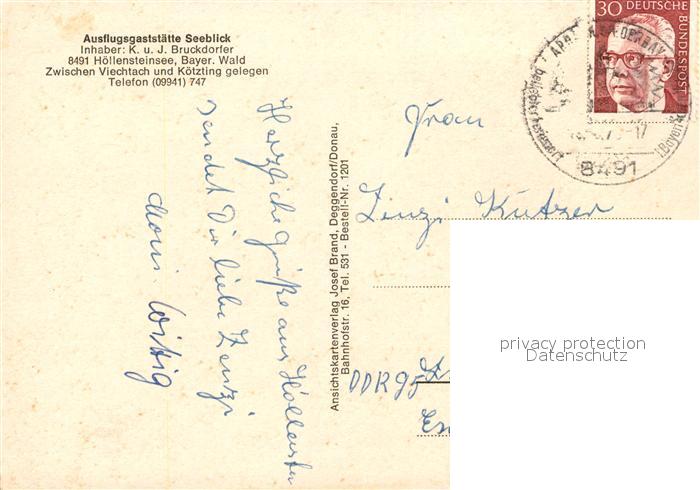 Ausflugsgaststätte Seeblick
Inhaber: K. u. J. Bruckdorfer
8491 Höllensteinsee, Bayer. Wald
Zwischen Viechtach und Kötzting gelegen
Telefon (09941) 747
Herzliche Grüße aus Höllenstein
sendet Dir liebe Zenzi
Ansichtskartenverlag Josef Brand, Deggendorf/Donau,
Bahnhofstr. 16, Tel. 531 - Bestell-Nr. 1201
30 DEUTSCHE
BUNDESPOST
8491
Frau
Zenzi Kutzer
DDR 95
privacy protection
Datenschutz